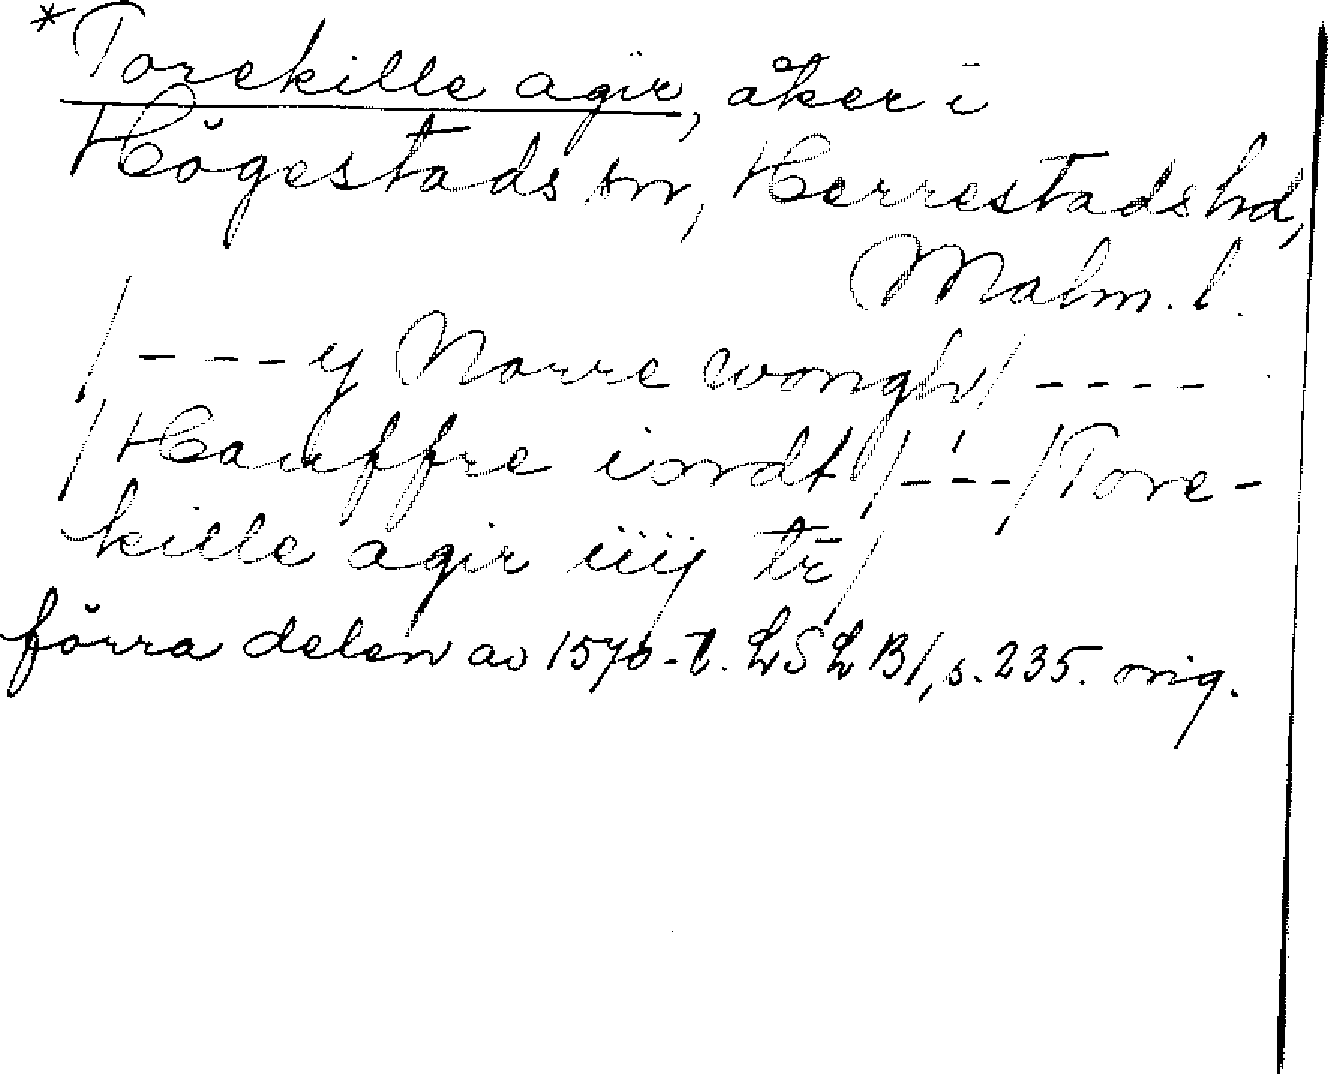 *Torekille agir, åker i
Högestads sn, Herrestads hd,
Malm. l.
/---y Norre wongh/----
/Hauffre iordt/---/Tore-
kille agir iiij tr/
förra delen av 1570-t. LSLB1, s. 235. orig.